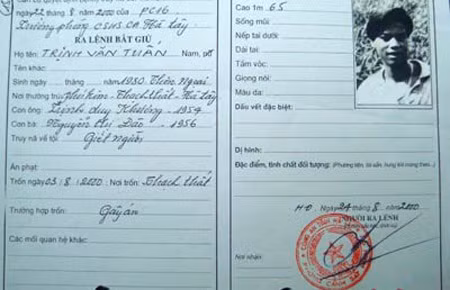 ngày 22 / 8 / 2000 của PC16
Trưởng phòng CSHS CA Hà tây
RA LỆNH BẮT GIỮ
Họ tên: TRỊNH VĂN TUẤN, Nam,
Tên khác:
Sinh ngày ..... tháng ..... năm 1980
Nơi thường trú: Thạch thất - Hà tây
Con ông: Trịnh duy Khương - 1954
Con bà: Nguyễn thị Đào - 1956
Truy nã về tội: Giết người
Án phạt:
Trốn ngày 03 / 8 / 2000 Nơi trốn: Thạch thất
Trường hợp trốn: Gây án
Các mối quan hệ khác:
Cao 1m 65
Sống mũi:
Nếp tai dưới:
Dái tai:
Tầm vóc:
Giọng nói:
Màu da:
Dấu vết đặc biệt:
Dị hình:
Đặc điểm, tính chất đối tượng:
HĐ, Ngày 24 tháng 8 năm 2000
NGƯỜI RA LỆNH
Nơi nhận: